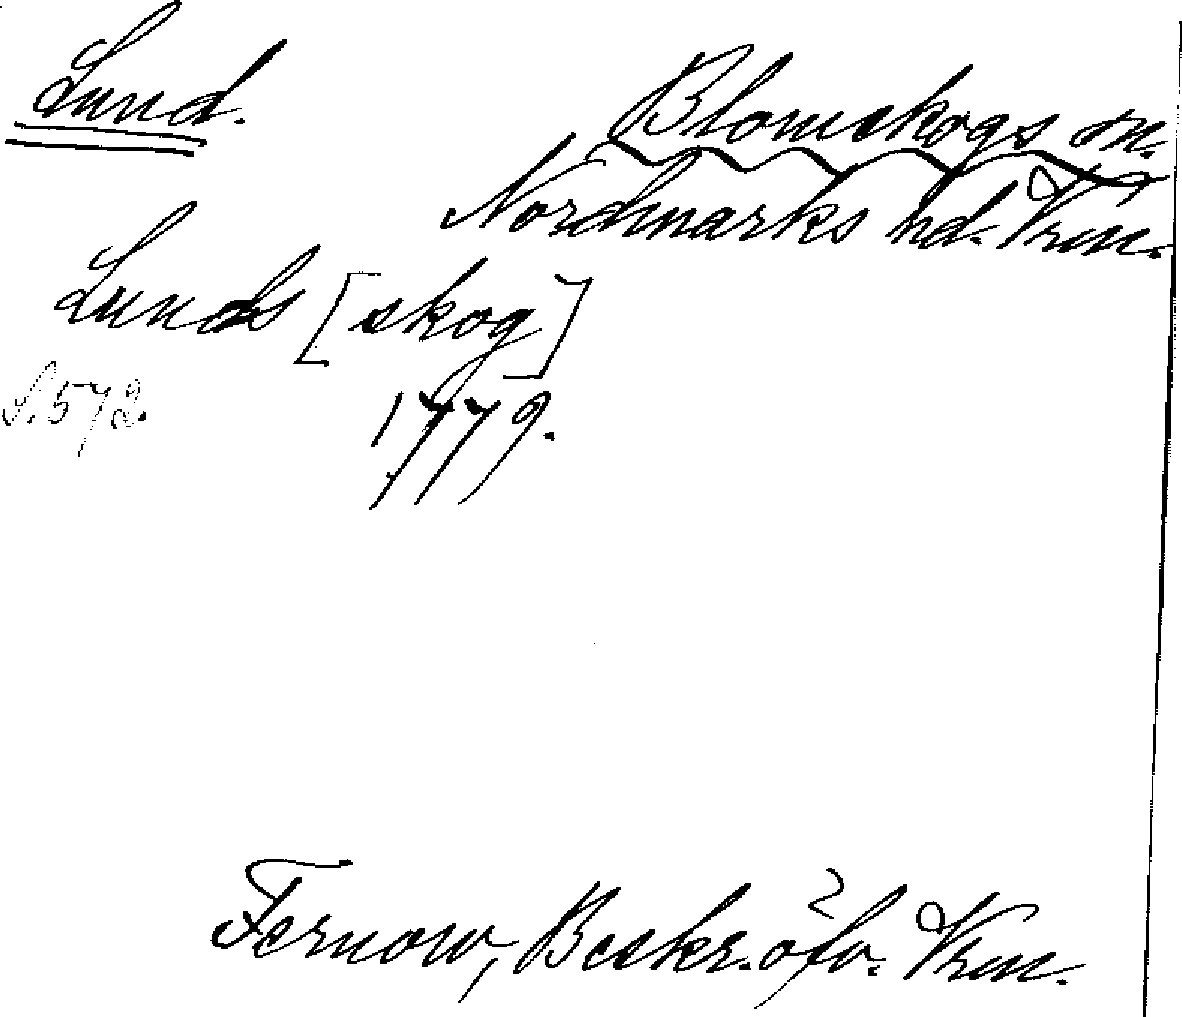 Lund.
Blomskogs sn.
Nordmarks hd. Vrm.
Lunds [skog]
S. 572.
1779.
Fernow, Beskr. öfv. Vrm.